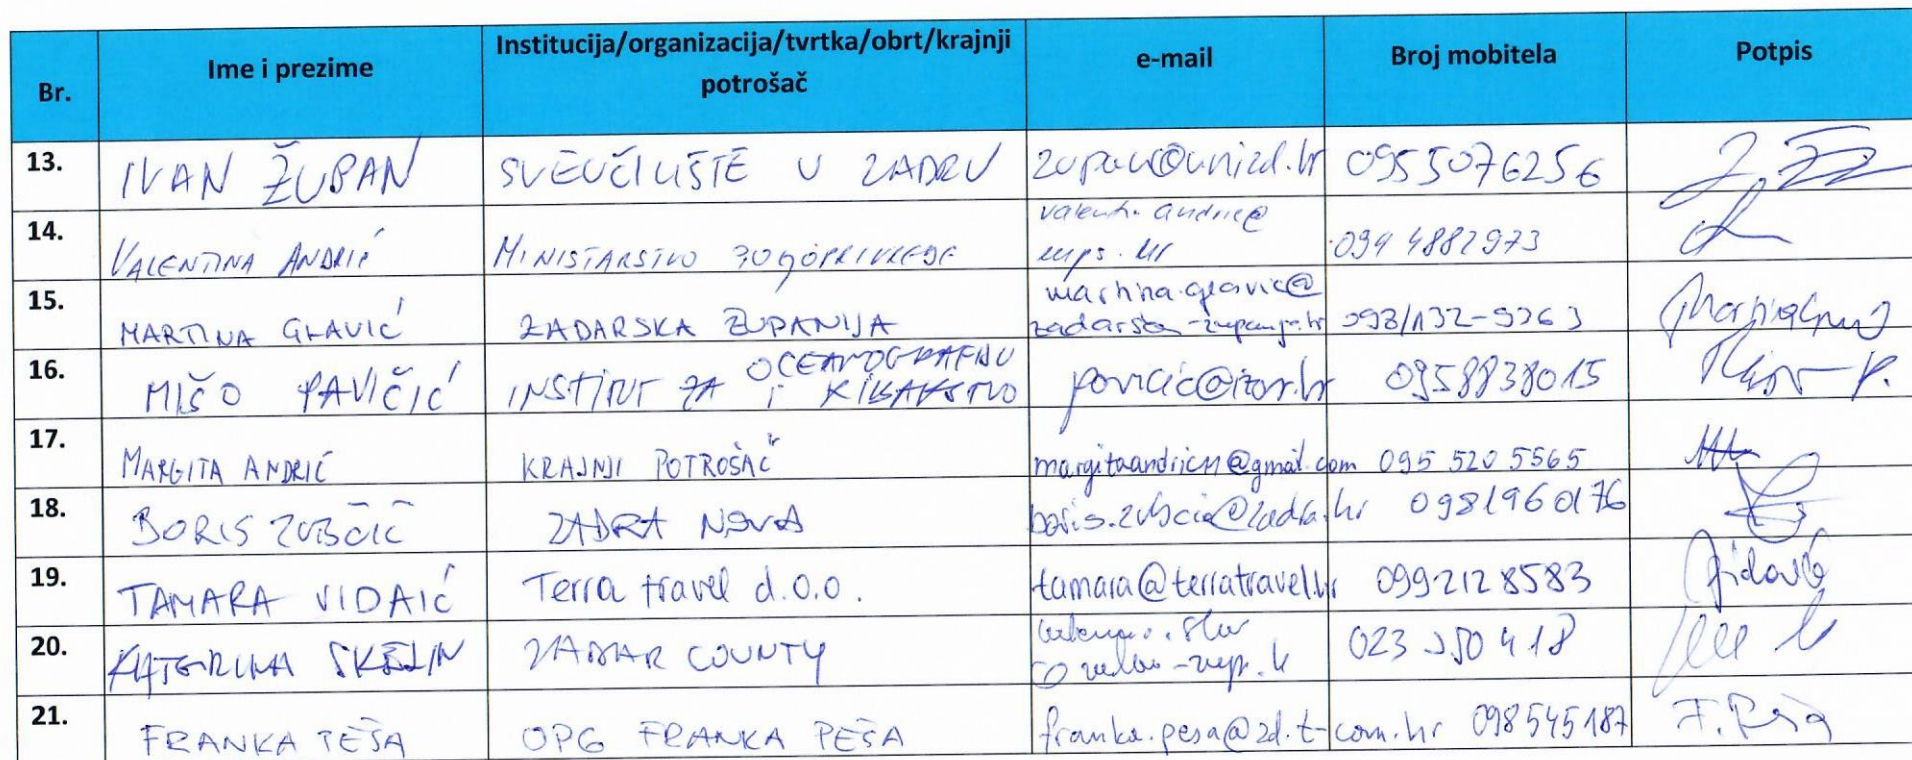 Br. Ime i prezime Institucija/organizacija/tvrtka/obrt/krajnji potrošač e-mail Broj mobitela Potpis
13. IVAN ŽUPAN SVEUČILIŠTE U ZADRU zupan@unizd.hr 0955076256
14. VALENTINA ANDRIĆ MINISTARSTVO POLJOPRIVREDE 099 4882973
15. MARTINA GLAVIĆ ZADARSKA ŽUPANIJA martina.glavic@
zadarska-zupanija.hr
16. MIŠO PAVIČIĆ INSTITUT ZA OCEANOGRAFIJU
I RIBARSTVO pavicic@izor.hr 0958838015
17. MARGITA ANDRIĆ KRAJNJI POTROŠAČ 095 520 5565
18. BORIS ZUBČIĆ ZADRA NOVA boris.zubcic@zadra.hr
19. TAMARA VIDAIĆ Terra travel d.o.o. tamara@terratravel.hr 0992128583
20. ZADAR COUNTY
21. FRANKA PEŠA OPG FRANKA PEŠA franka.pesa@zd.t-com.hr 098545187 F. Peša